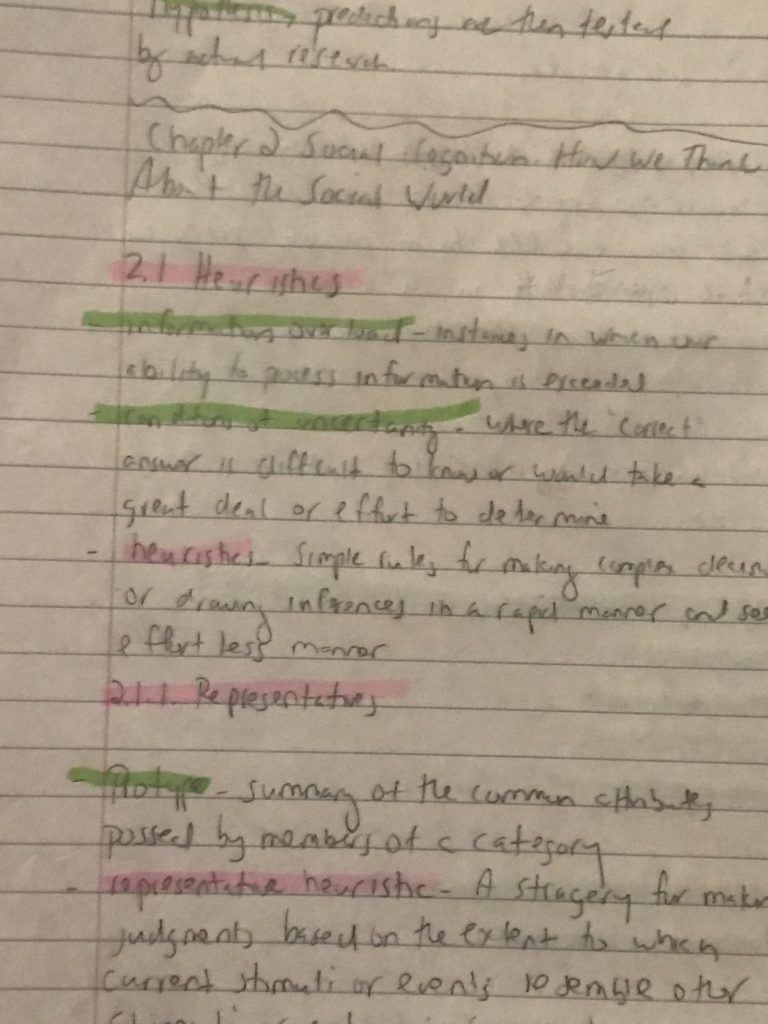 predictions are then tested
by actual research
Chapter 2 Social Cognition How We Think
About the Social World
2.1 Heuristics
- information overload - instances in when our
ability to process information is exceeded
- conditions of uncertainty - where the "correct"
answer is difficult to know or would take a
great deal or effort to determine
- heuristics - simple rules for making complex
or drawing inferences in a rapid manner and
effortless manner
2.1.1. Representatives
- Protype - summary of the common attributes
possed by members of a category
- representative heuristic - A stragery for
judgments based on the extent to which
current stimuli or events resemble other